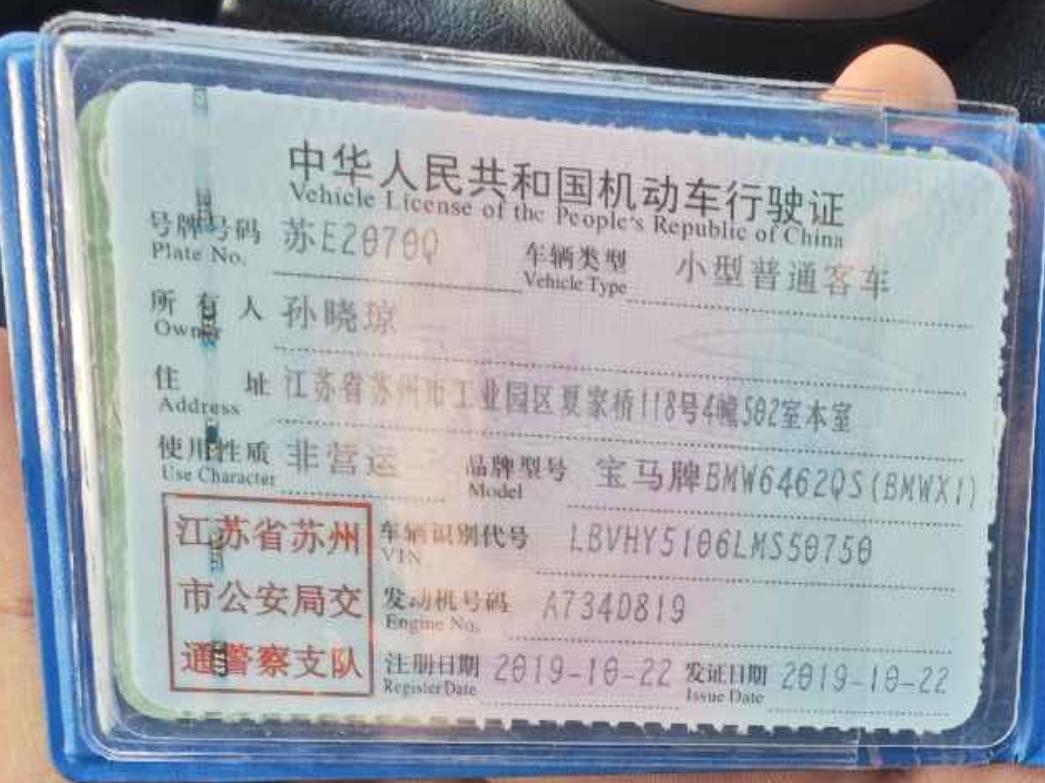 中华人民共和国机动车行驶证
Vehicle License of the People's Republic of China
号牌号码 苏E2070Q 车辆类型 小型普通客车
Plate No. Vehicle Type
所有人 孙晓琼
Owner
住址 江苏省苏州市工业园区夏家桥118号4幢502室本室
Address
使用性质 非营运 品牌型号 宝马牌BMW6462QS(BMWX1)
Use Character Model
江苏省苏州 车辆识别代号 LBVHY5106LMS50750
VIN
市公安局交 发动机号码 A734D819
Engine No.
通警察支队 注册日期 2019-10-22 发证日期 2019-10-22
Register Date Issue Date